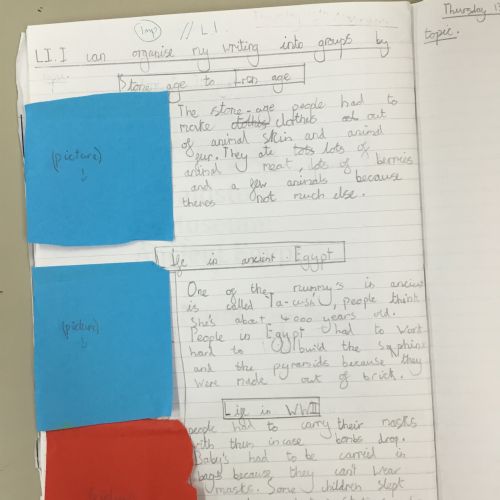 Imp // L.I.
Thursday
L.I. I can organise my writing into groups by
topic.
Stone age to Iron age
The stone-age people had to
make clothes out
of animal skin and animal
fur. They ate lots of
animal meat, lots of berries
and a few animals because
theres not much else.
(picture)
Life in ancient Egypt
One of the mummy's in ancient
is called Ta-cush, people think
She's about 4000 years old.
People in Egypt had to work
hard to build the sphinx
and the pyramids because they
were made out of brick.
(picture)
Life in WWII
people had to carry their masks
with them incase bombs drop.
Baby's had to be carried in
bags because they can't wear
masks. Some children slept